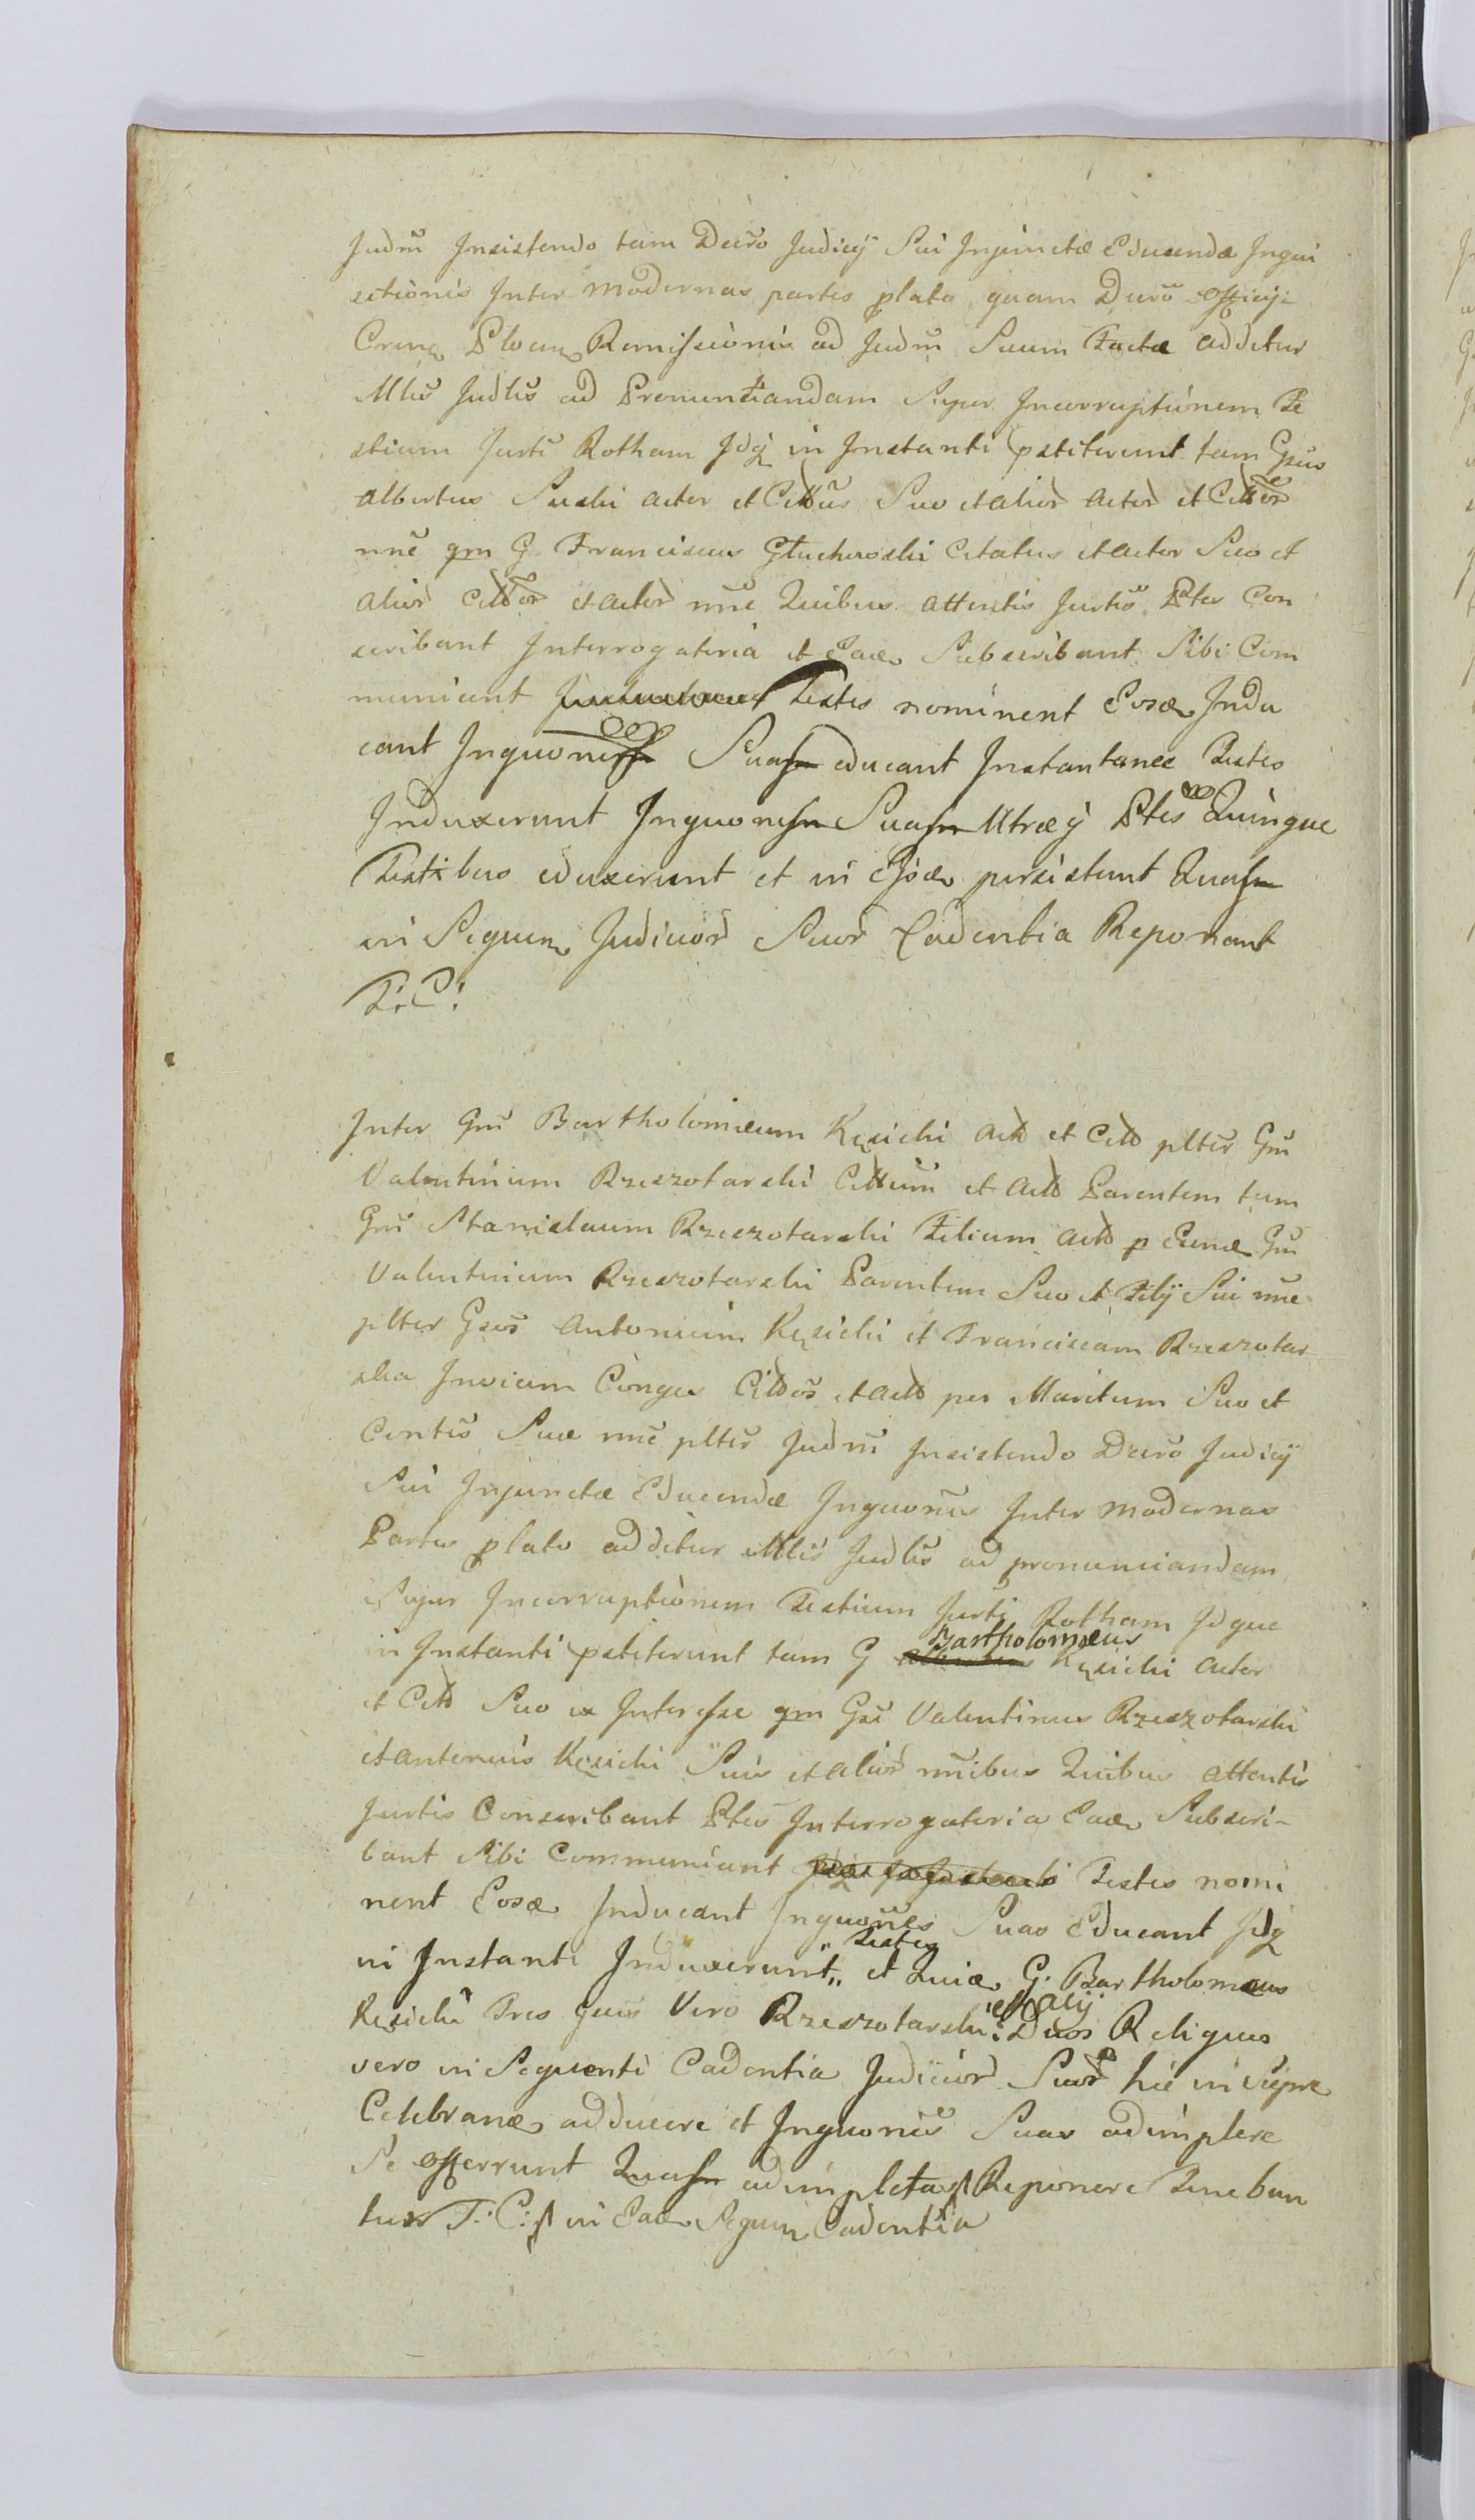 Judm Insistendo tam Decro Judicij Sui Injunctæ Educendæ Inqui
sitionis Inter modernas partes plato quam Decro officij
Crens Plocens Remissionis ad Judm Suum Factæ additur
Mlis Judlis ad Pronuntiandam super Incorruptionem Te
stium Jurti Rotham Idq in Instanti pstiterunt tam Gsus
Albertus Suski actor et Citttus Suo et alior actor et Citttor
nne qm G. Franciscus Głuchowski Citatus et actor Suo et
alior Citttor et actor nne Quibus attentis Jurtis Ptes Con
scribant Interrogatoria et Eade Subscribant Sibi Com
municent Testes nominent Eosde Indu
cant Inquones Suas educant Instantanee Testes
Induxerunt Inquones Suas Utræq Ptes Quinque
Testibus eduxerunt et in Ijsde persistunt Quas
in Sequen Judicior Suor Cadentia Reponant
T: C:
Inter Gm Bartholomæum Kęsicki actt et Citt plter Gm
Valentinum Rzeszotarski Citttum et actt Parentem tum
Gm Stanislaum Rzeszotarski Filium actt p Eunde Gm
Valentinum Rzeszotarski Parentem Suo et Filij Sui nne
plter Gsos Antonium Kęsicki et Franciscam Rzeszotar
ska Invicem Conges Cittos et actt per Maritum Suo et
Contis Suæ nne plter Judm Insistendo Decro Judicij
Sui Injunctæ Educendæ Inquonis Inter modernas
Partes plato additur Mlis Judlis ad pronunciandam
super Incorruptionem Testium Jurti Rotham Idque
in Instanti pstiterunt tam G Bartholomæus Kęsicki actor
et Citt Suo ex Interesse qm Gsi Valentinus Rzeszotarski
et Antonius Kęsicki Suis et alior nnibus Quibus attentis
Jurtis Conscribant Ptes Interrogatoria Eade Subscri-
bant Sibi Communicent Testes nomi
nent Eosde Inducant Inquones Suas Educant Idq
in Instanti Induxerunt „ Testes „ et Quia G. Bartholomæus
Kęsicki Tres gnus Vero Rzeszotarski et alij Duos Reliquos
vero in Sequenti Cadentia Judicior Suor hic in Siepre
Celebran adducere et Inquones Suas adimplere
Se offerrunt Quas adimpletas Reponere Teneban
tur T: C: in Eade Sequen Cadentia